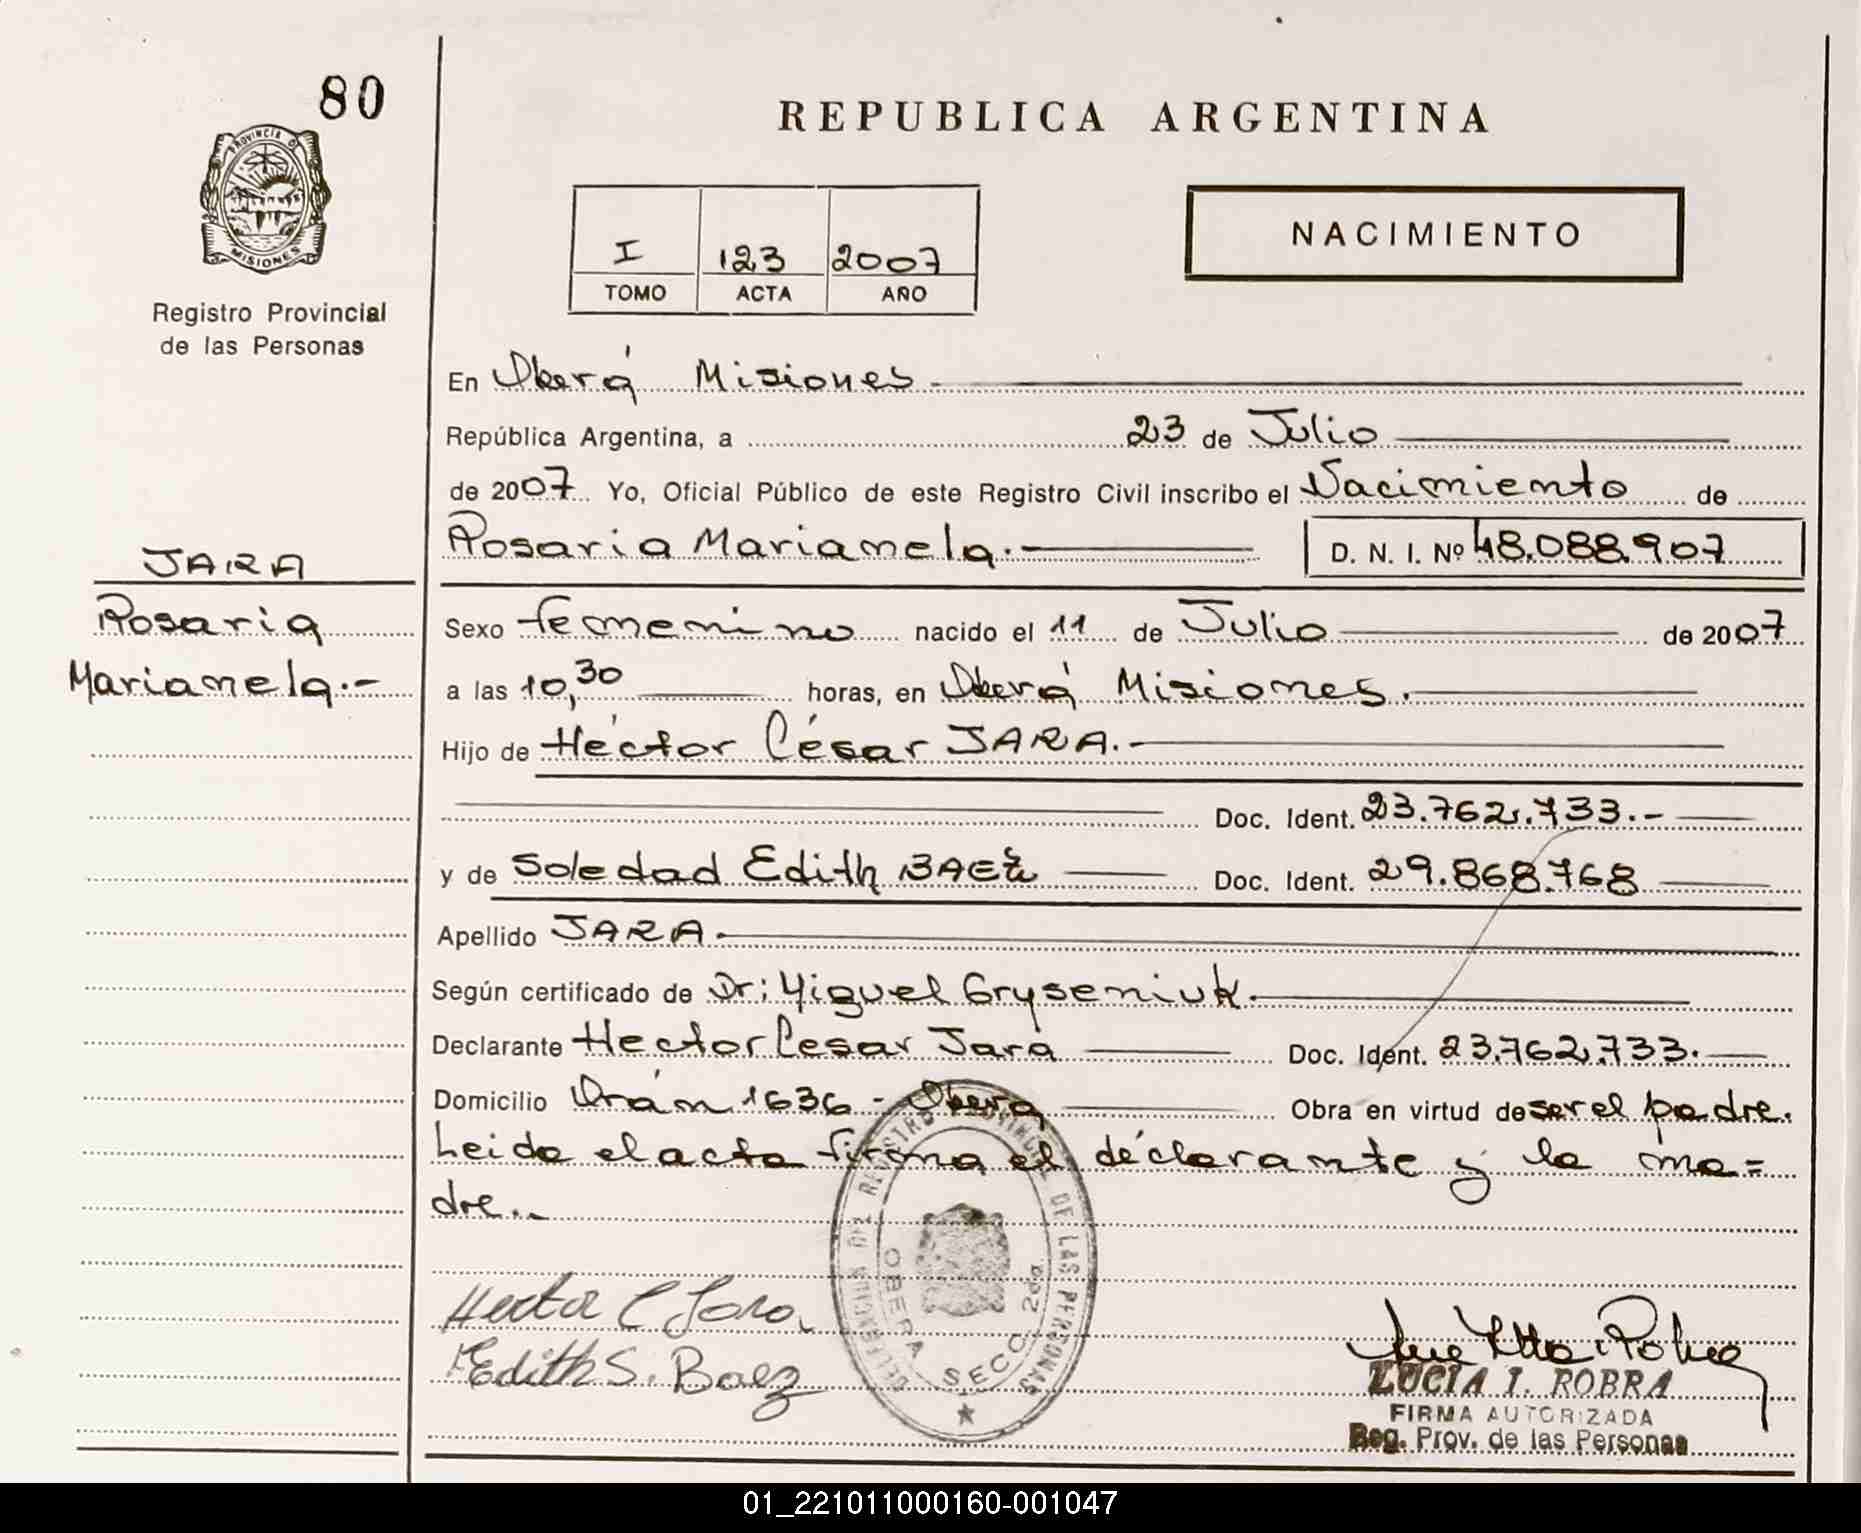 80
PROVINCIA D
MISIONES
Registro Provincial
de las Personas
REPUBLICA ARGENTINA
I 123 2007
TOMO ACTA AÑO
NACIMIENTO
En Oberá Misiones.
República Argentina, a 23 de Julio
de 2007 Yo, Oficial Público de este Registro Civil inscribo el Nacimiento de
Rosaria Marianela.- D. N. I. Nº 48.088.907
JARA
Rosaria
Marianela.-
Sexo femenino nacido el 11 de Julio de 2007
a las 10,30 horas, en Oberá Misiones.
Hijo de Héctor César JARA.-
Doc. Ident. 23.762.733.-
y de Soledad Edith BAEZ Doc. Ident. 29.868.768
Apellido JARA.
Según certificado de Dr: Miguel Gryseniuk.
Declarante Hector Cesar Jara Doc. Ident. 23.762.733.
Domicilio Orán 1636 - Oberá Obra en virtud de ser el padre.
Leida el acta firma el déclarante y la ma=
dre..
DELEGACION DEL REGISTRO PROVINCIAL DE LAS PERSONAS
OBERA SECC. 2da
Hector C Jara
Edith S. Baez
LUCIA I. ROBRA
FIRMA AUTORIZADA
Reg. Prov. de las Personas
01_221011000160-001047